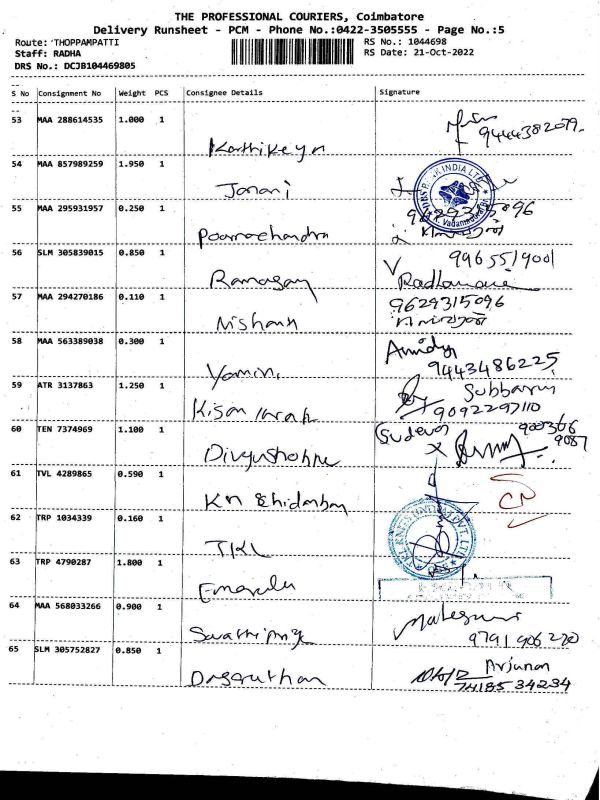 THE PROFESSIONAL COURIERS, Coimbatore
Delivery Runsheet - PCM - Phone No.:0422-3505555 - Page No.:5
Route: THOPPAMPATTI
RS No.: 1044698
Staff: RADHA
RS Date: 21-Oct-2022
DRS No.: DCJB104469805
S No Consignment No Weight PCS Consignee Details Signature
53 MAA 288614535 1.000 1
9444382079.
Karthikeyn
54 MAA 857989259 1.950 1
INDIA LTD
Janani
55 MAA 295931957 0.250 1
9629315096
Poornachandra
56 SLM 305839015 0.850 1
9965519001
Ramasamy
57 MAA 294270186 0.110 1
9629315096
Nishann
58 MAA 563389038 0.300 1
9443486225
Yamini
59 ATR 3137863 1.250 1
Subbarni
9092297110
Kisan
60 TEN 7374969 1.100 1
Divyashohne
61 TVL 4289865 0.590 1
CN
KN Chidambam
62 TRP 1034339 0.160 1
TKL
63 TRP 4790287 1.800 1
64 MAA 568033266 0.900 1
9791906220
Swathi
65 SLM 305752827 0.850 1
Arjunan
74185 34234
Dasaruthan